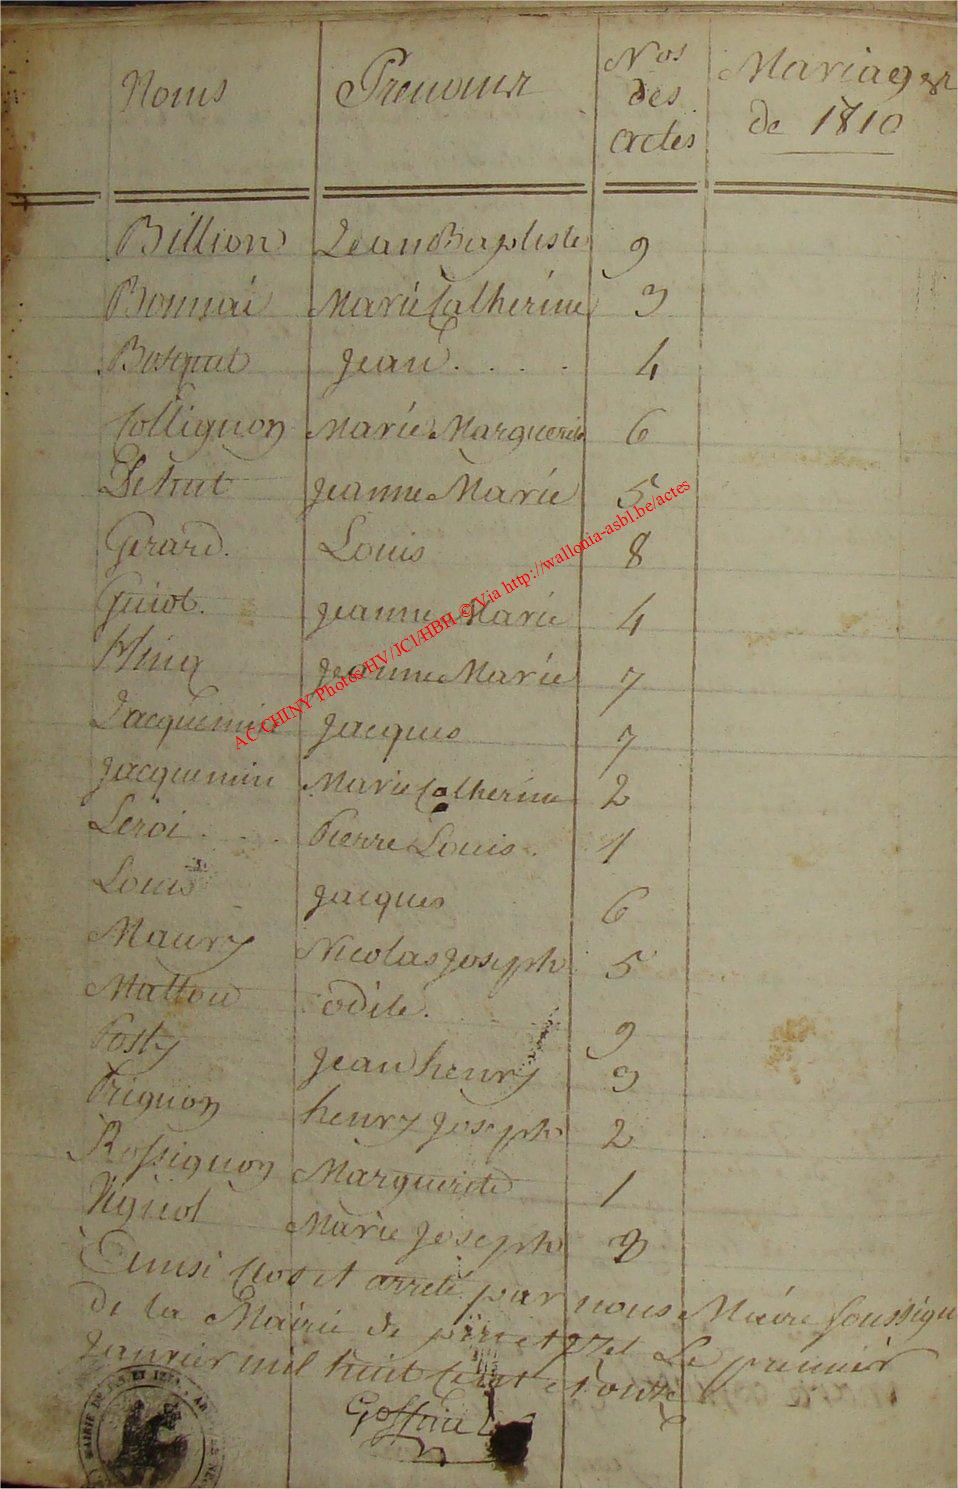 Noms Prenoms Nos des actes Mariages de 1810
Billion Jean Baptiste 9
Bonnai Marie Catherine 3
Bosquet Jean . . . . 4
Collignon Marie Marguerite 6
Dehut Jeanne Marie 5
Gerard. Louis 8
Guiot. Jeanne Marie 4
Jeanne Marie 7
Jacquemin Jacques 7
Jacquemin Marie Catherine 2
Leroi . . . Pierre Louis . 1
Louis Jacques 6
Maury Nicolas Joseph 5
Matton odile. 9
Posty Jean henry 3
Prignon henry Joseph 2
Rossignon Marguerite 1
Marie Joseph 8
Ainsi Clos et arreté par nous Maire Soussigné
de la Mairie de et Izel Le premier
Janvier mil huit Cent et onze
AC CHINY Photos HV/JCl/HBH © Via http://wallonia-asbl.be/actes
MAIRIE DE